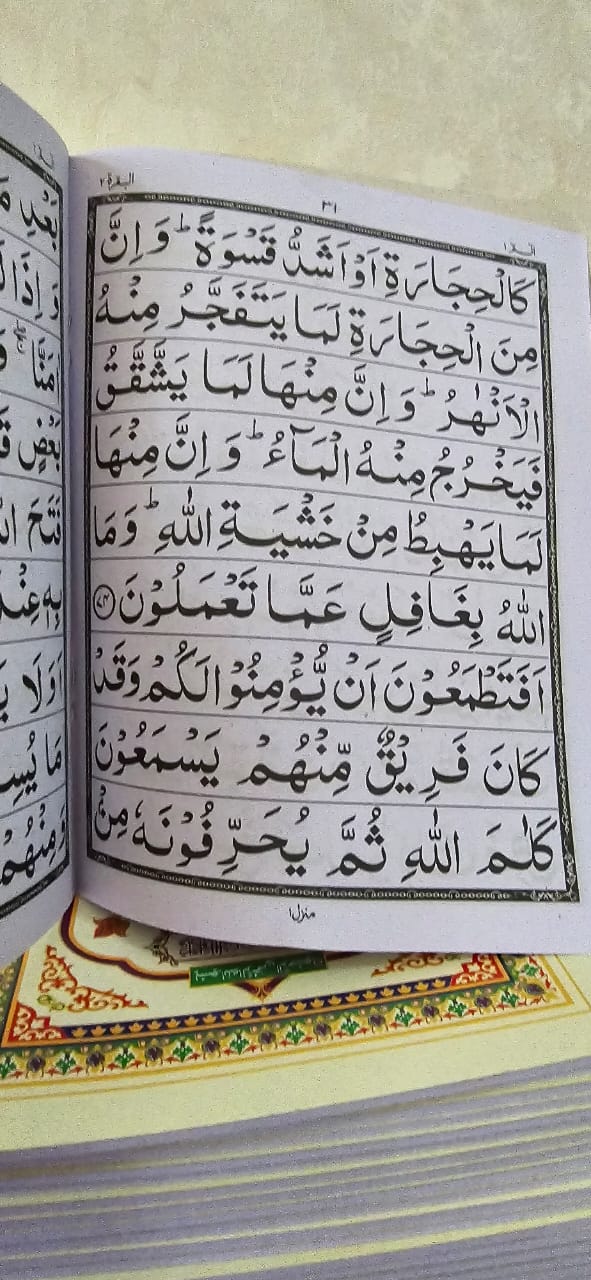 البقرة ٢
٣١
الٓمّٓ ١
كَالْحِجَارَةِ اَوْ اَشَدُّ قَسْوَةً ؕ وَ اِنَّ
مِنَ الْحِجَارَةِ لَمَا یَتَفَجَّرُ مِنْهُ
الْاَنْهٰرُ ؕ وَ اِنَّ مِنْهَا لَمَا یَشَّقَّقُ
فَیَخْرُجُ مِنْهُ الْمَآءُ ؕ وَ اِنَّ مِنْهَا
لَمَا یَهْبِطُ مِنْ خَشْیَةِ اللّٰهِ ؕ وَمَا
اللّٰهُ بِغَافِلٍ عَمَّا تَعْمَلُوْنَ ﴿۷۴﴾
اَفَتَطْمَعُوْنَ اَنْ یُّؤْمِنُوْا لَكُمْ وَقَدْ
كَانَ فَرِیْقٌ مِّنْهُمْ یَسْمَعُوْنَ
كَلٰمَ اللّٰهِ ثُمَّ یُحَرِّفُوْنَهٗ مِنْۢ
منزل ١
بَعْدِ
وَ اِذَا
اٰمَنَّا
بَعْضٍ
فَتَحَ
بِهٖ عِنْدَ
اَوَلَا
مَا
وَمِنْهُمْ